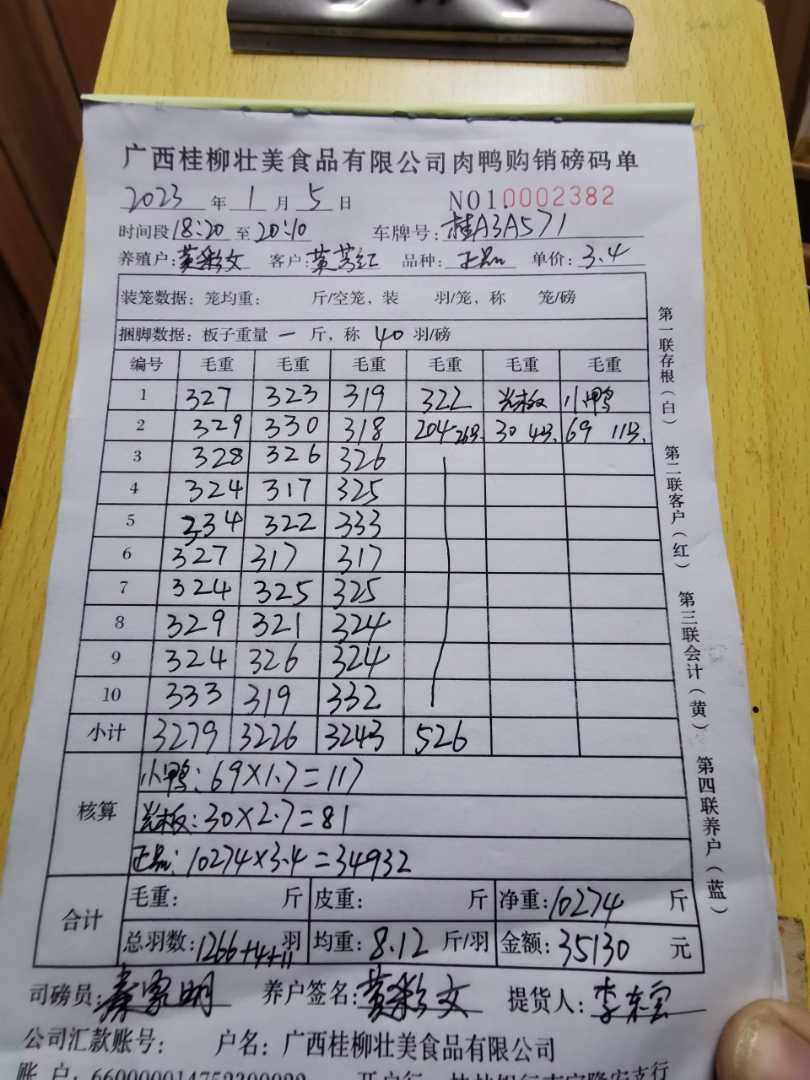 广西桂柳壮美食品有限公司肉鸭购销磅码单
2023 年 1 月 5 日 NO10002382
时间段18:20 至20:10 车牌号:桂A3A571
养殖户:黄彩文 客户: 品种:正品 单价:3.4
装笼数据: 笼均重: 斤/空笼, 装 羽/笼, 称 笼/磅
捆脚数据: 板子重量 一 斤, 称 40 羽/磅
编号 毛重 毛重 毛重 毛重 毛重 毛重
1 327 323 319 322 光板 小鸭
2 329 330 318 204 26只 30 4只 69 11只
3 328 326 326
4 324 317 325
5 334 322 333
6 327 317 317
7 324 325 325
8 329 321 324
9 324 326 324
10 333 319 332
小计 3279 3226 3243 526
核算
小鸭: 69×1.7=117
光板: 30×2.7=81
正品: 10274×3.4=34932
合计
毛重: 斤 皮重: 斤 净重: 10274 斤
总羽数: 1266+4+11 羽 均重: 8.12 斤/羽 金额: 35130 元
司磅员: 养户签名: 黄彩文 提货人:
公司汇款账号: 户名: 广西桂柳壮美食品有限公司
第一联存根(白)
第二联客户(红)
第三联会计(黄)
第四联养户(蓝)